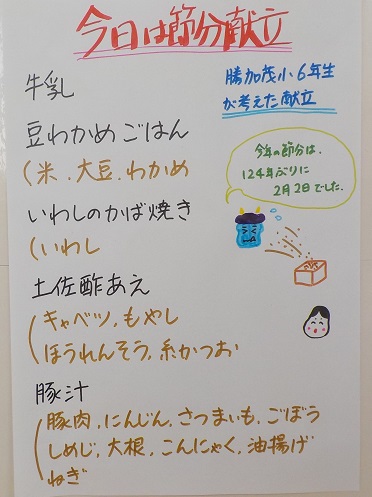 今日は節分献立
勝加茂小6年生
が考えた献立
牛乳
豆わかめごはん
(米.大豆.わかめ
今年の節分は、
124年ぶりに
2月2日でした.
いわしのかば焼き
(いわし
土佐酢あえ
キャベツ,もやし
ほうれんそう,糸かつお
豚汁
豚肉,にんじん,さつまいも,ごぼう
しめじ,大根,こんにゃく,油揚げ
ねぎ